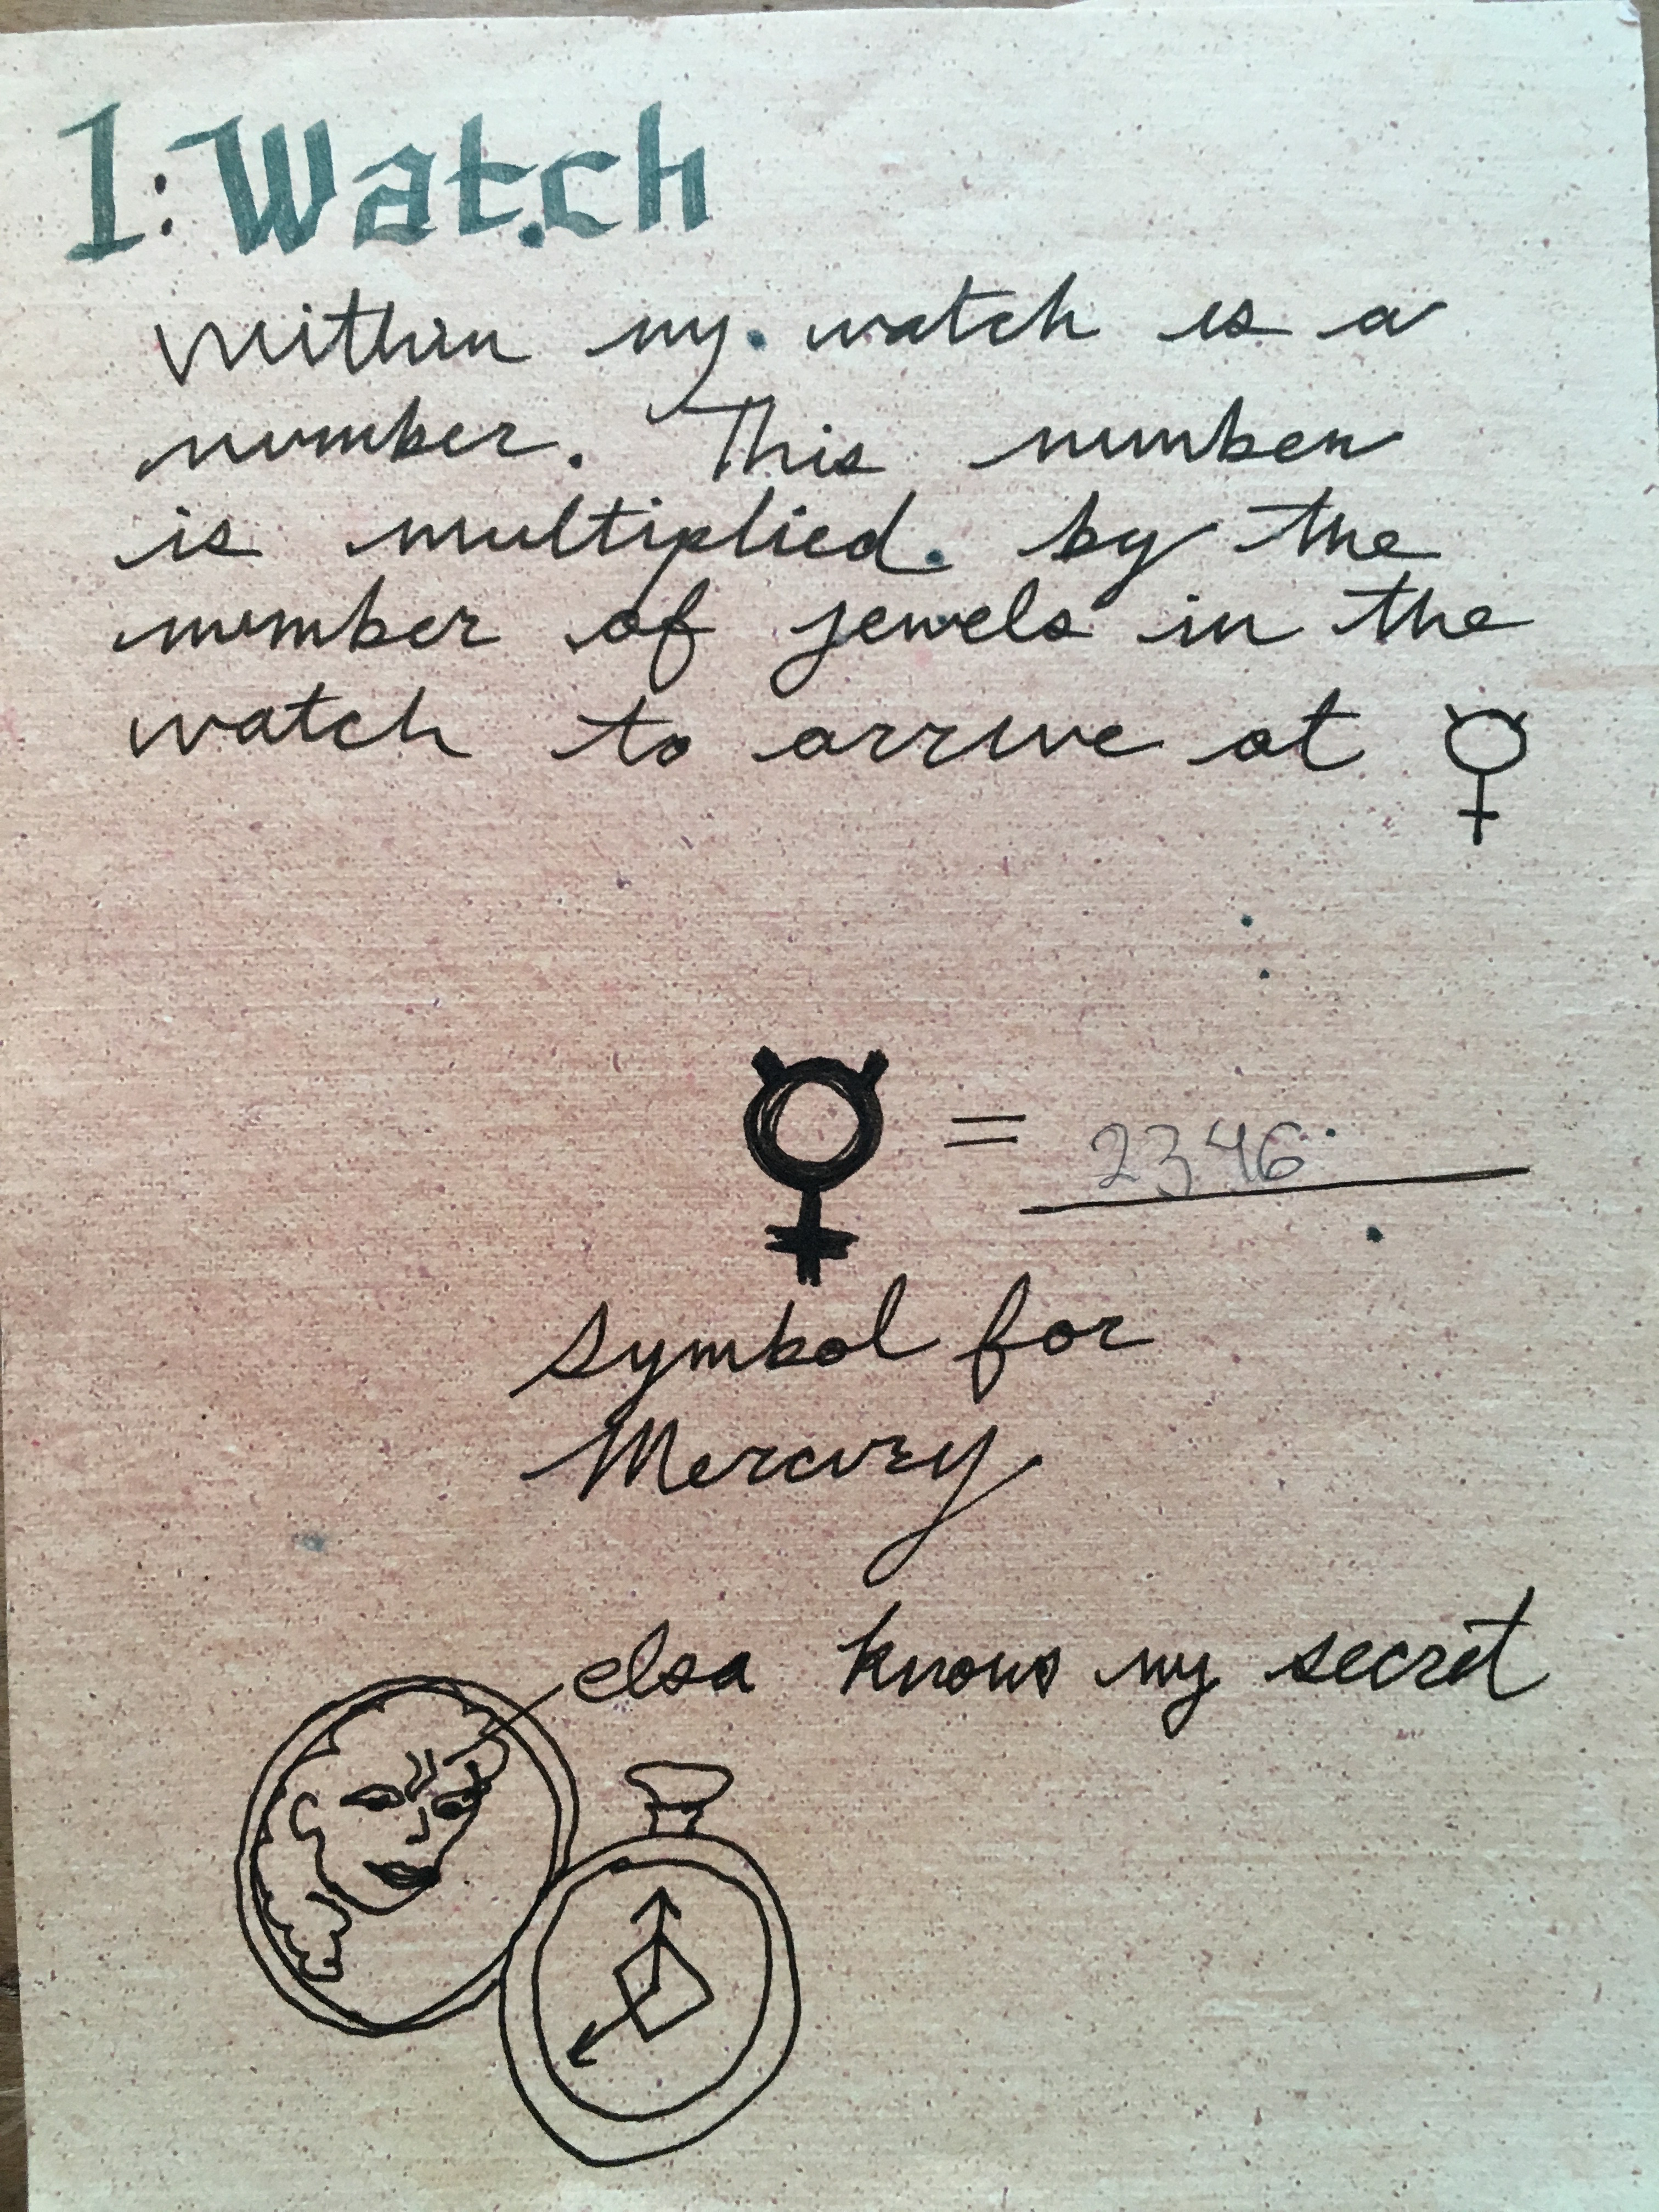 1: Watch
Within my watch is a
number. This number
is multiplied by the
number of jewels in the
watch to arrive at ☿
☿ = 2346
Symbol for
Mercury
elsa knows my secret